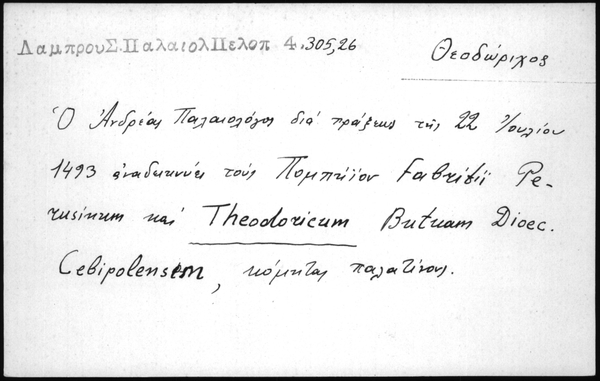 ΛαμπρουΣ.ΠαλαιολΠελοπ 4.305,26
Θεοδώριχος
Ὁ Ἀνδρέας Παλαιολόγος διά πράξεως τῆς 22 Ἰουλίου
1493 ἀναδεικνύει τούς Πομπήϊον Fabritii Pe-
rusinum καί Theodoricum Butuam Dioec.
Cebipolensem, κόμητας παλατίνους.